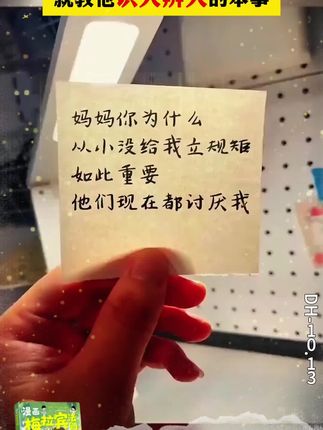 就教他识人辨人的本事
妈妈你为什么
从小没给我立规矩
如此重要
他们现在都讨厌我
DH-10.13
漫画